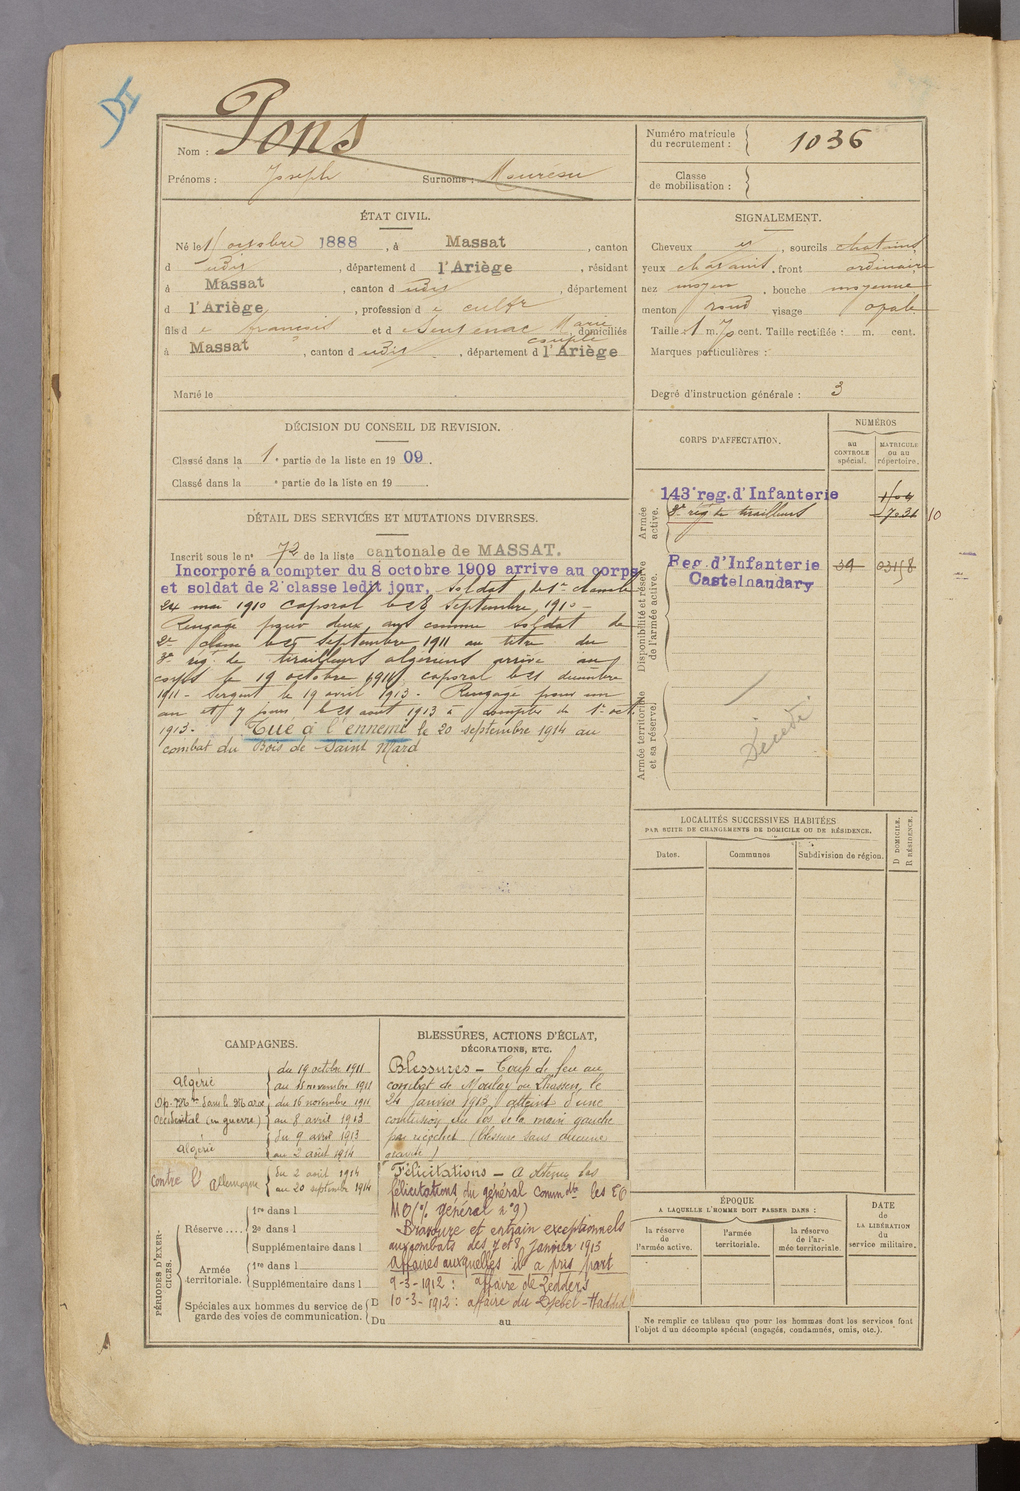 DI
Nom : Pons
Prénoms : Joseph Surnoms :
Numéro matricule du recrutement : 1036
Classe de mobilisation :
ÉTAT CIVIL.
Né le 1 octobre 1888, à Massat, canton
d udis, département d l'Ariège, résidant
à Massat, canton d udis, département
d l'Ariège, profession d e cultr
fils d e François et d e Sentenac Marie, domiciliés
couple
à Massat, canton d udis, département d l'Ariège
Marié le
SIGNALEMENT.
Cheveux et, sourcils chatains
yeux chatains, front ordinaire
nez moyen, bouche moyenne
menton rond visage ovale
Taille : 1 m. 70 cent. Taille rectifiée : m. cent.
Marques particulières :
Degré d'instruction générale : 3
DÉCISION DU CONSEIL DE REVISION.
Classé dans la 1e partie de la liste en 1909.
Classé dans la e partie de la liste en 19 .
CORPS D'AFFECTATION.
NUMÉROS
au CONTROLE spécial.
MATRICULE ou au répertoire.
Armée active.
143e reg. d'Infanterie
3e rég de tirailleurs 10
Disponibilité et réserve de l'armée active.
Reg. d'Infanterie
Castelnaudary
Armée territoriale et sa réserve
Décédé
DÉTAIL DES SERVICES ET MUTATIONS DIVERSES.
Inscrit sous le n° 72 de la liste cantonale de MASSAT.
Incorporé a compter du 8 octobre 1909 arrive au corps
et soldat de 2e classe ledit jour, soldat de 1re classe le
24 mai 1910 caporal le 28 septembre 1910 -
Rengagé pour deux ans comme soldat de
2e classe le 25 septembre 1911 au titre du
3e rég. de tirailleurs algériens arrivé au
corps le 19 octobre 1911, caporal le 21 décembre
1911 - Sergent le 19 avril 1913 - Rengagé pour un
an et 7 jours le 21 août 1913 à compter du 1er oct.
1913. Tué à l'ennemi le 20 septembre 1914 au
combat du Bois de Saint Mard
LOCALITÉS SUCCESSIVES HABITÉES
PAR SUITE DE CHANGEMENTS DE DOMICILE OU DE RÉSIDENCE.
Dates. Communes Subdivision de région. D DOMICILE. R RÉSIDENCE.
CAMPAGNES.
Algérie du 19 octobre 1911
au 15 novembre 1911
Op. Mres dans le Maroc du 16 novembre 1911
Occidental (en guerre) au 8 avril 1913
Algérie du 9 avril 1913
au 2 août 1914
contre l'Allemagne du 2 août 1914
au 20 septembre 1914
BLESSURES, ACTIONS D'ÉCLAT, DÉCORATIONS, ETC.
Blessures - Coup de feu au
combat de Moulay ou Lhassen, le
24 janvier 1913, atteint d'une
contusion du dos de la main gauche
par ricochet (blessure sans aucune
gravité)
Félicitations - A obtenu les
félicitations du général commdt les TO
MO (% général n°9)
Bravoure et entrain exceptionnels
aux combats des 7 et 8 Janvier 1913
Affaires auxquelles il a pris part
9-3-1912 : affaire de Zedders
10-3-1912 : affaire du Djebel-Hadded
PÉRIODES D'EXERCICES.
Réserve.... 1re dans l
2e dans l
Supplémentaire dans l
Armée territoriale. 1re dans l
Supplémentaire dans l
Spéciales aux hommes du service de garde des voies de communication. D
Du au
ÉPOQUE
A LAQUELLE L'HOMME DOIT PASSER DANS :
la réserve de l'armée active. l'armée territoriale. la réserve de l'armée territoriale.
DATE de LA LIBÉRATION du service militaire.
Ne remplir ce tableau que pour les hommes dont les services font
l'objet d'un décompte spécial (engagés, condamnés, omis, etc.).